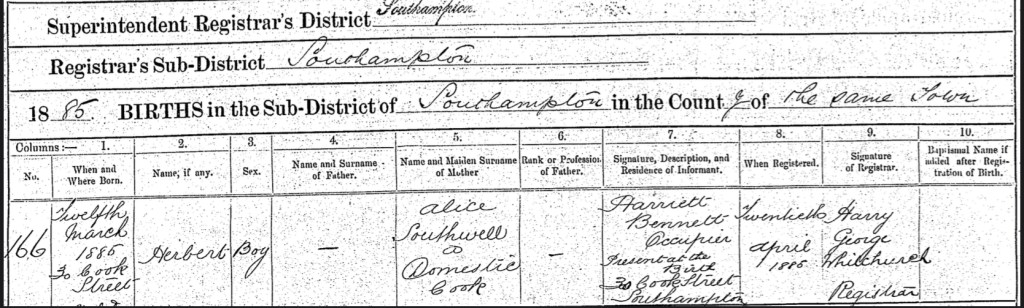 Superintendent Registrar's District Southampton
Registrar's Sub-District Southampton
1885. BIRTHS in the Sub-District of Southampton in the County of the same Town
Columns:— 1. 2. 3. 4. 5. 6. 7. 8. 9. 10.
No. When and Where Born. Name, if any. Sex. Name and Surname of Father. Name and Maiden Surname of Mother Rank or Profession of Father. Signature, Description, and Residence of Informant. When Registered. Signature of Registrar. Baptismal Name if added after Registration of Birth.
166
Twelfth
March
1885
Cook
Street
Herbert
Boy
—
Alice
Southwell
a
Domestic
Cook
—
Harriett
Bennett
Occupier
Present at the
Birth
Cook Street
Southampton
Twentieth
April
1885
Harry
George
Whitchurch
Registrar